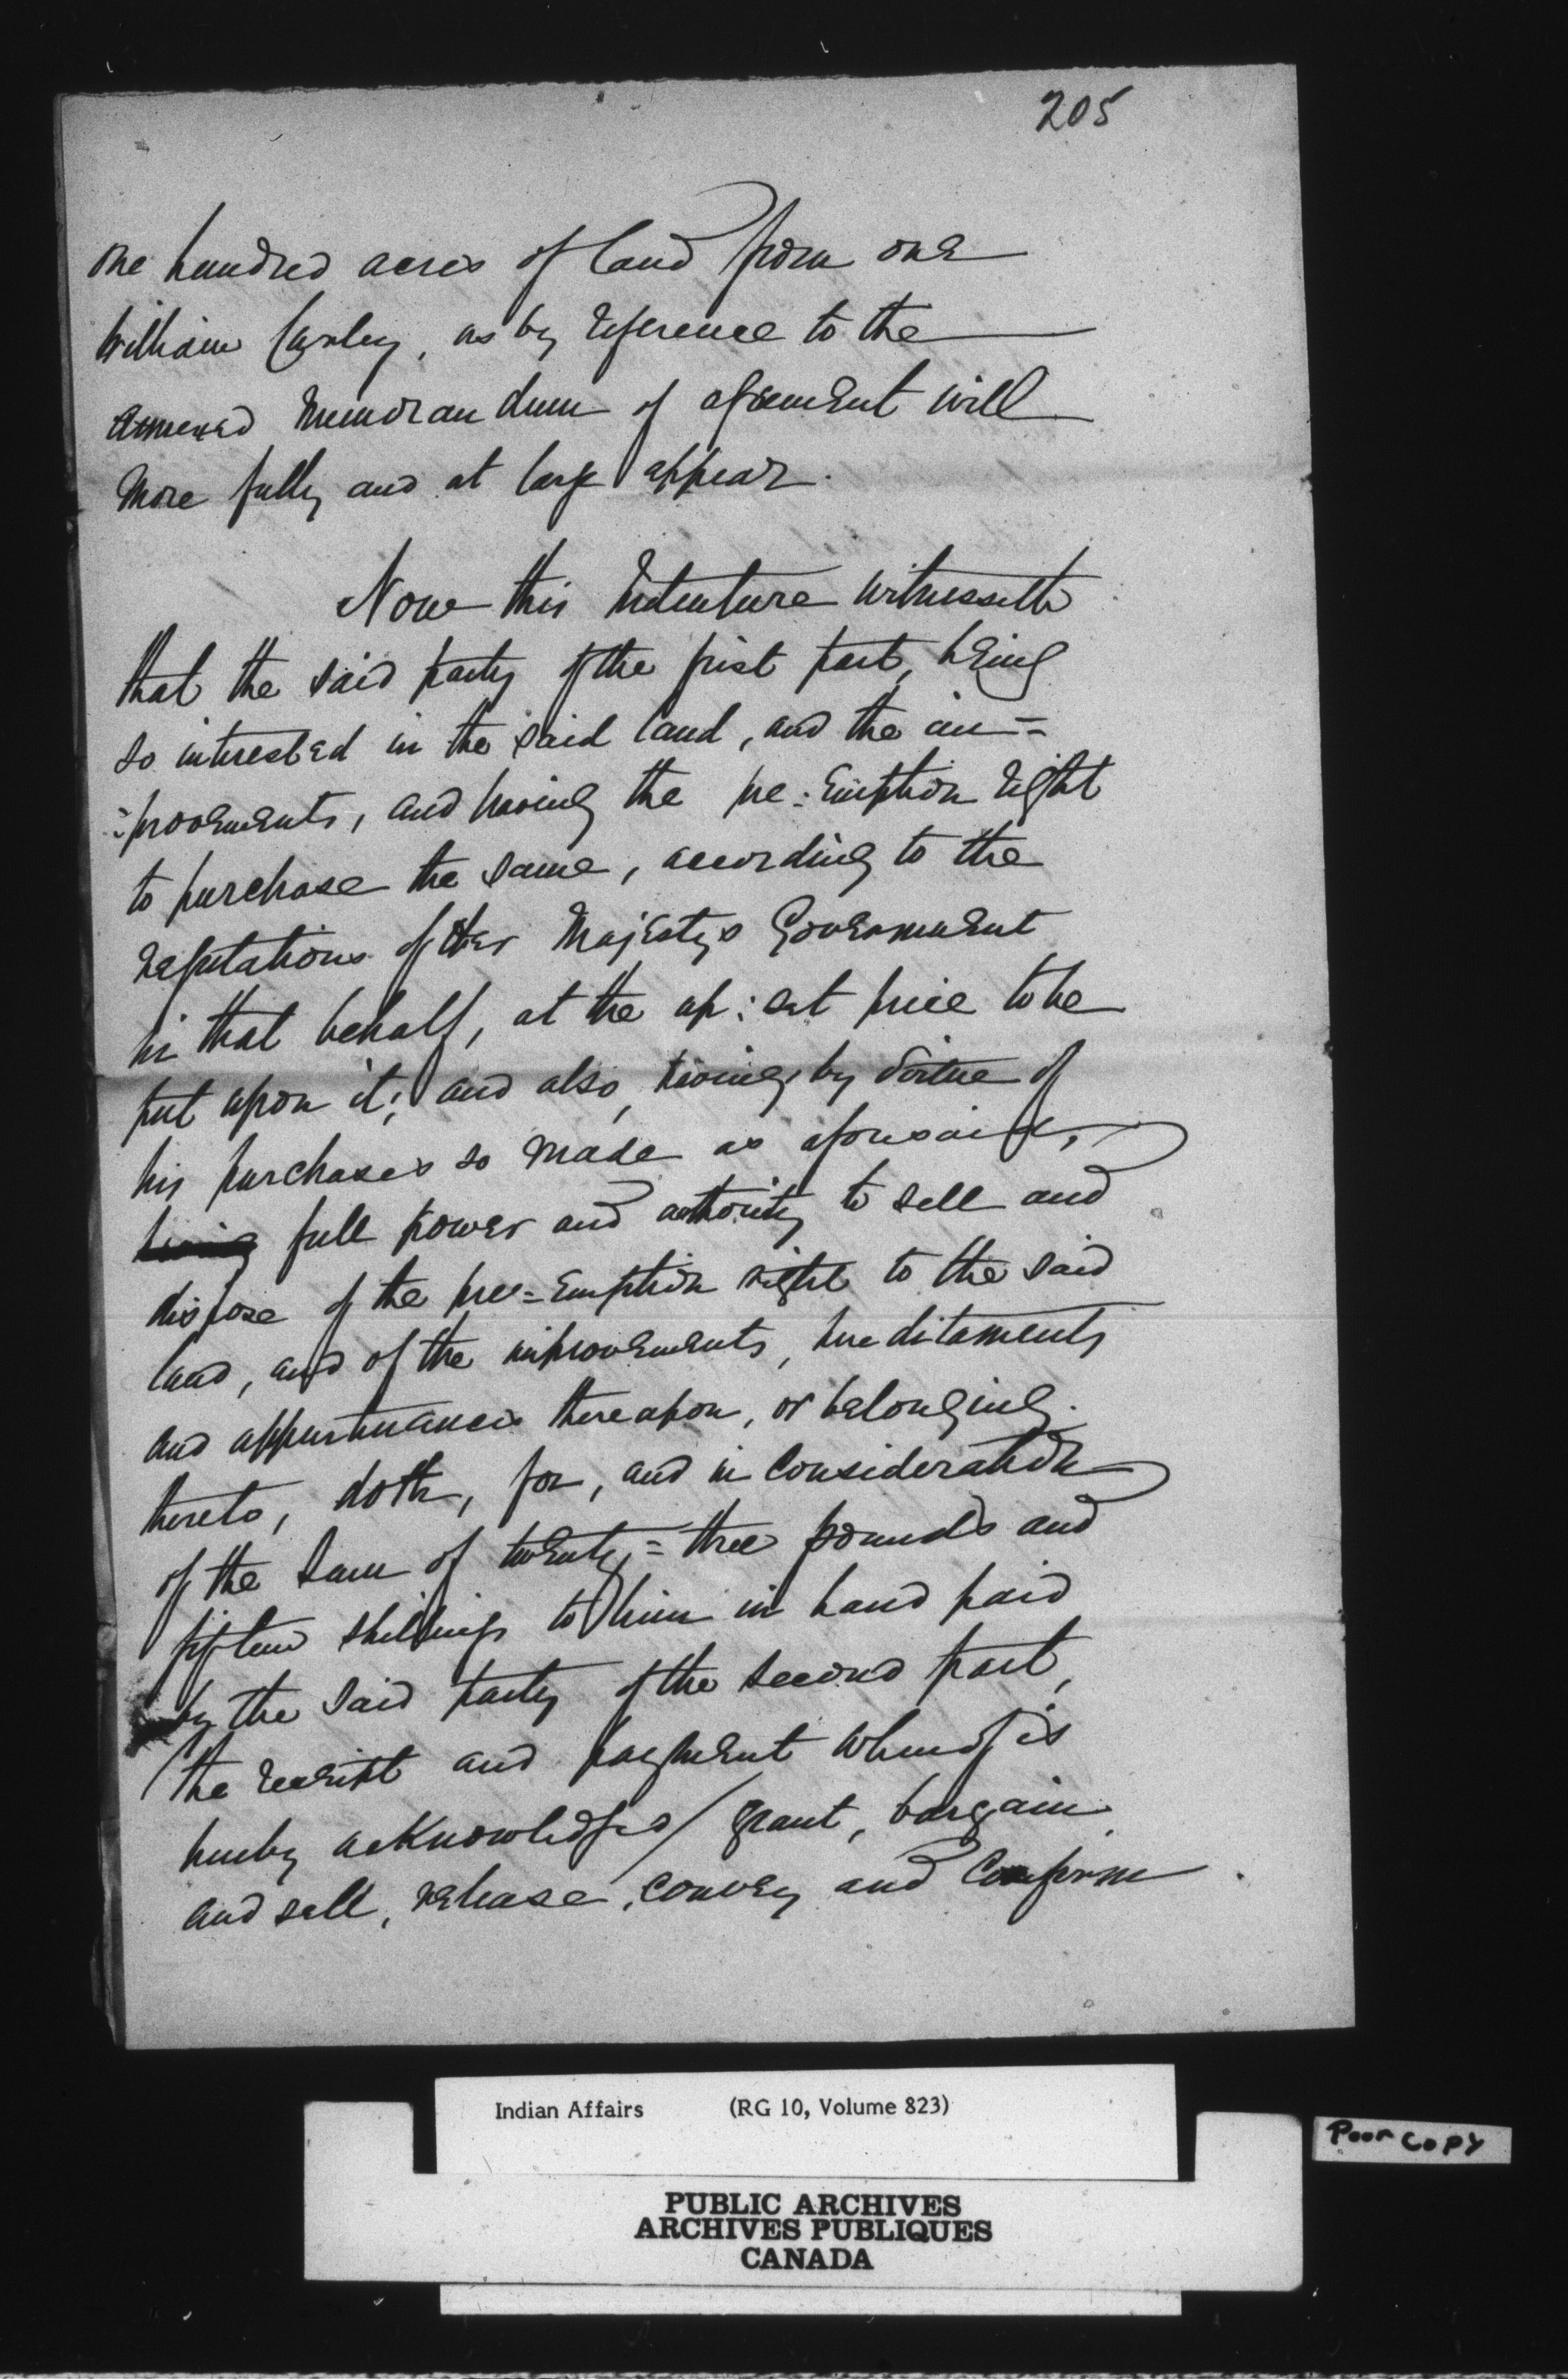 205
one hundred acres of land from one
William Carley, as by reference to the
annexed memorandum of agreement will
more fully and at large appear.
Now this Indenture witnesseth
that the said party of the first part, being
so interested in the said land, and the im=
=provements, and having the pre=emption right
to purchase the same, according to the
regulations of Her Majestys Government
in that behalf, at the up:set price to be
put upon it; and also, having by virtue of
his purchases so made as aforesaid,
having full power and authority to sell and
dispose of the pre=emption right to the said
land, and of the improvements, hereditaments
and appurtenances thereupon, or belonging
thereto, doth, for, and in consideration
of the sum of twenty=three pounds and
fifteen shillings to him in hand paid
by the said party of the second part,
(the receipt and payment whereof is
hereby acknowledged/ grant, bargain,
and sell, release, convey and confirm
Indian Affairs (RG 10, Volume 823)
Poor Copy
PUBLIC ARCHIVES
ARCHIVES PUBLIQUES
CANADA